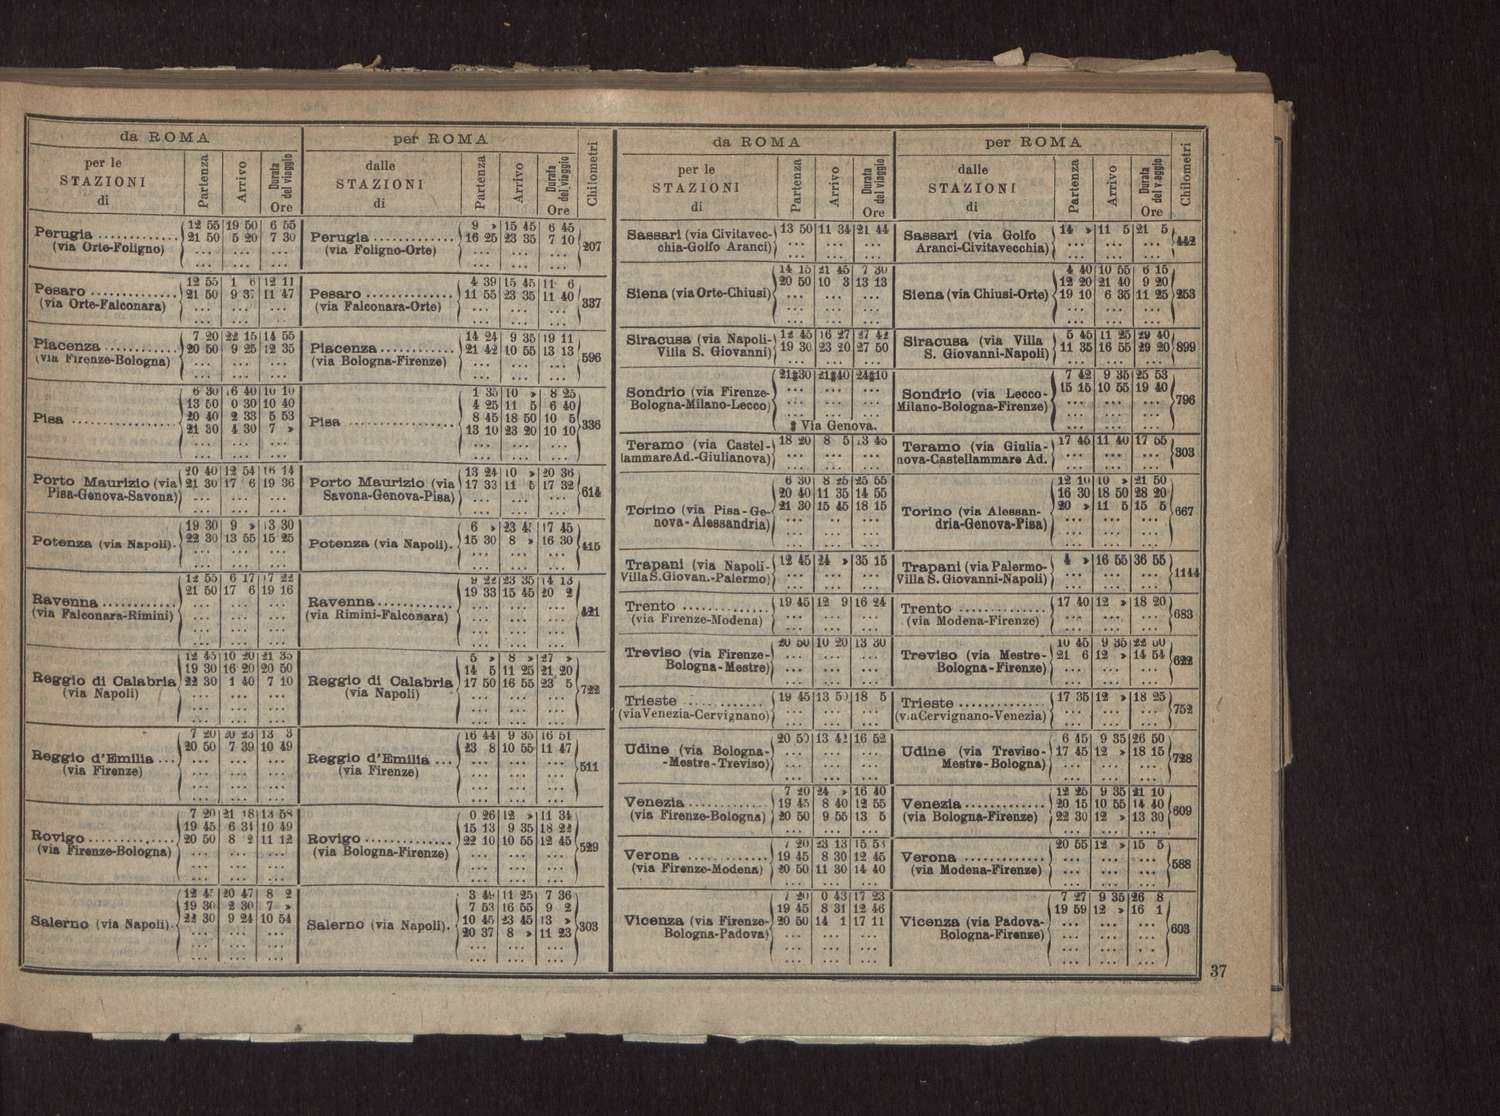 da ROMA
per le STAZIONI di
Partenza
Arrivo
Durata del viaggio
Ore
per ROMA
dalle STAZIONI di
Partenza
Arrivo
Durata del viaggio
Ore
Chilometri
Perugia ............
(via Orte-Foligno)
12 55 19 50 6 55
21 50 5 20 7 30
... ... ...
... ... ...
Perugia ............
(via Foligno-Orte)
9 » 15 45 6 45
16 25 23 35 7 10
... ... ...
... ... ...
207
Pesaro ............
(via Orte-Falconara)
12 55 1 6 12 11
21 50 9 37 11 47
... ... ...
... ... ...
Pesaro ............
(via Falconara-Orte)
4 39 15 45 11 6
11 55 23 35 11 40
... ... ...
... ... ...
337
Piacenza ............
(via Firenze-Bologna)
7 20 22 15 14 55
20 50 9 25 12 35
... ... ...
... ... ...
Piacenza ............
(via Bologna-Firenze)
14 24 9 35 19 11
21 42 10 55 13 13
... ... ...
... ... ...
596
Pisa ............
6 30 16 40 10 10
13 50 0 30 10 40
20 40 2 33 5 53
21 30 4 30 7 »
... ... ...
... ... ...
Pisa ............
1 35 10 » 8 25
4 25 11 5 6 40
8 45 18 50 10 5
13 10 23 20 10 10
... ... ...
... ... ...
336
Porto Maurizio (via
Pisa-Genova-Savona)
20 40 12 54 16 14
21 30 17 6 19 36
... ... ...
... ... ...
Porto Maurizio (via
Savona-Genova-Pisa)
13 24 10 » 20 36
17 33 11 5 17 32
... ... ...
... ... ...
614
Potenza (via Napoli).
19 30 9 » 13 30
22 30 13 55 15 25
... ... ...
... ... ...
Potenza (via Napoli).
6 » 23 45 17 45
15 30 8 » 16 30
... ... ...
... ... ...
415
Ravenna ............
(via Falconara-Rimini)
12 55 6 17 17 22
21 50 17 6 19 16
... ... ...
... ... ...
... ... ...
... ... ...
Ravenna ............
(via Rimini-Falconara)
9 22 23 35 14 13
19 33 15 45 20 2
... ... ...
... ... ...
... ... ...
... ... ...
421
Reggio di Calabria
(via Napoli)
12 45 10 20 21 35
19 30 16 20 20 50
22 30 1 40 7 10
... ... ...
... ... ...
... ... ...
Reggio di Calabria
(via Napoli)
5 » 8 » 27 »
14 5 11 25 21 20
17 50 16 55 23 5
... ... ...
... ... ...
... ... ...
722
Reggio d'Emilia ...
(via Firenze)
7 20 20 23 13 3
20 50 7 39 10 49
... ... ...
... ... ...
... ... ...
... ... ...
Reggio d'Emilia ...
(via Firenze)
16 44 9 35 16 51
23 8 10 55 11 47
... ... ...
... ... ...
... ... ...
... ... ...
511
Rovigo ............
(via Firenze-Bologna)
7 20 21 18 13 58
19 45 6 34 10 49
20 50 8 2 11 12
... ... ...
... ... ...
... ... ...
Rovigo ............
(via Bologna-Firenze)
0 26 12 » 11 34
15 13 9 35 18 22
22 10 10 55 12 45
... ... ...
... ... ...
... ... ...
529
Salerno (via Napoli).
12 45 20 47 8 2
19 30 2 30 7 »
22 30 9 24 10 54
... ... ...
... ... ...
... ... ...
Salerno (via Napoli).
3 49 11 25 7 36
7 53 16 55 9 2
10 45 23 45 13 »
20 37 8 » 11 23
... ... ...
... ... ...
303
da ROMA
per le STAZIONI di
Partenza
Arrivo
Durata del viaggio
Ore
per ROMA
dalle STAZIONI di
Partenza
Arrivo
Durata del viaggio
Ore
Chilometri
Sassari (via Civitavec-
chia-Golfo Aranci)
13 50 11 34 21 44
... ... ...
... ... ...
Sassari (via Golfo
Aranci-Civitavecchia)
14 » 11 5 21 5
... ... ...
... ... ...
442
Siena (via Orte-Chiusi)
14 15 21 45 7 30
20 50 10 3 13 13
... ... ...
... ... ...
... ... ...
Siena (via Chiusi-Orte)
4 40 10 55 6 15
12 20 21 40 9 20
19 10 6 35 11 25
... ... ...
... ... ...
253
Siracusa (via Napoli-
Villa S. Giovanni)
12 45 16 27 27 42
19 30 23 20 27 50
... ... ...
Siracusa (via Villa
S. Giovanni-Napoli)
5 45 11 25 29 40
11 35 16 55 29 20
... ... ...
899
Sondrio (via Firenze-
Bologna-Milano-Lecco)
21 30 21 40 24 10
... ... ...
... ... ...
... ... ...
Via Genova.
Sondrio (via Lecco-
Milano-Bologna-Firenze)
7 42 9 35 25 53
15 15 10 55 19 40
... ... ...
... ... ...
... ... ...
796
Teramo (via Castel-
lammare Ad.-Giulianova)
18 20 8 5 13 45
... ... ...
... ... ...
Teramo (via Giulia-
nova-Castellammare Ad.
17 45 11 40 17 55
... ... ...
... ... ...
303
Torino (via Pisa-Ge-
nova-Alessandria)
6 30 8 25 25 55
20 40 11 35 14 55
21 30 15 45 18 15
... ... ...
... ... ...
... ... ...
Torino (via Alessan-
dria-Genova-Pisa)
12 10 10 » 21 50
16 30 18 50 28 20
20 » 11 5 15 5
... ... ...
... ... ...
... ... ...
667
Trapani (via Napoli-
Villa S. Giovan.-Palermo)
12 45 24 » 35 15
... ... ...
... ... ...
Trapani (via Palermo-
Villa S. Giovanni-Napoli)
4 » 16 55 36 55
... ... ...
... ... ...
1144
Trento ............
(via Firenze-Modena)
19 45 12 9 16 24
... ... ...
... ... ...
Trento ............
(via Modena-Firenze)
17 40 12 » 18 20
... ... ...
... ... ...
683
Treviso (via Firenze-
Bologna-Mestre)
20 50 10 20 13 30
... ... ...
... ... ...
... ... ...
Treviso (via Mestre-
Bologna-Firenze)
10 45 9 35 22 50
21 6 12 » 14 54
... ... ...
... ... ...
622
Trieste ............
(via Venezia-Cervignano)
19 45 13 50 18 5
... ... ...
... ... ...
Trieste ............
(via Cervignano-Venezia)
17 35 12 » 18 25
... ... ...
... ... ...
752
Udine (via Bologna-
-Mestre-Treviso)
20 50 13 42 16 52
... ... ...
... ... ...
... ... ...
Udine (via Treviso-
Mestre-Bologna)
6 45 9 35 26 50
17 45 12 » 18 15
... ... ...
... ... ...
728
Venezia ............
(via Firenze-Bologna)
7 20 24 » 16 40
19 45 8 40 12 55
20 50 9 55 13 5
... ... ...
Venezia ............
(via Bologna-Firenze)
12 25 9 35 21 10
20 15 10 55 14 40
22 30 12 » 13 30
... ... ...
609
Verona ............
(via Firenze-Modena)
7 20 23 13 15 53
19 45 8 30 12 45
20 50 11 30 14 40
... ... ...
Verona ............
(via Modena-Firenze)
20 55 12 » 15 5
... ... ...
... ... ...
... ... ...
588
Vicenza (via Firenze-
Bologna-Padova)
7 20 0 43 17 23
19 45 8 31 12 46
20 50 14 1 17 11
... ... ...
... ... ...
... ... ...
Vicenza (via Padova-
Bologna-Firenze)
7 27 9 35 26 8
19 59 12 » 16 1
... ... ...
... ... ...
... ... ...
... ... ...
603
37